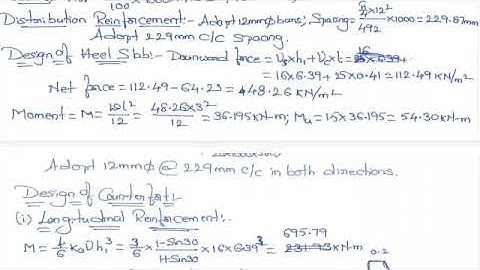 100
Distribution Reinforcement:- Adopt 12mmΦ bars; Spacing = π/4 ×12² / 492 ×1000 = 229.87mm
Adopt 229mm c/c Spacing.
Design of Heel Slab:- Downward force = γs×h1 + γc×t = 16
= 16×6.39 + 25×0.41 = 112.49 KN/m²
Net force = 112.49 - 64.23 = 448.26 KN/m²
Moment = M = wl²/12 = 48.26×3²/12 = 36.195 KN-m; Mu = 1.5×36.195 = 54.30 KN-m
Adopt 12mmΦ @ 229mm c/c in both directions.
Design of Counterfort:-
(i) Longitudinal Reinforcement:-
695.79
M = L/6 Ka γ h1³ = 3/6 × 1-Sin30/1+Sin30 × 16×6.39³ = 231.93 KN-m
0.2